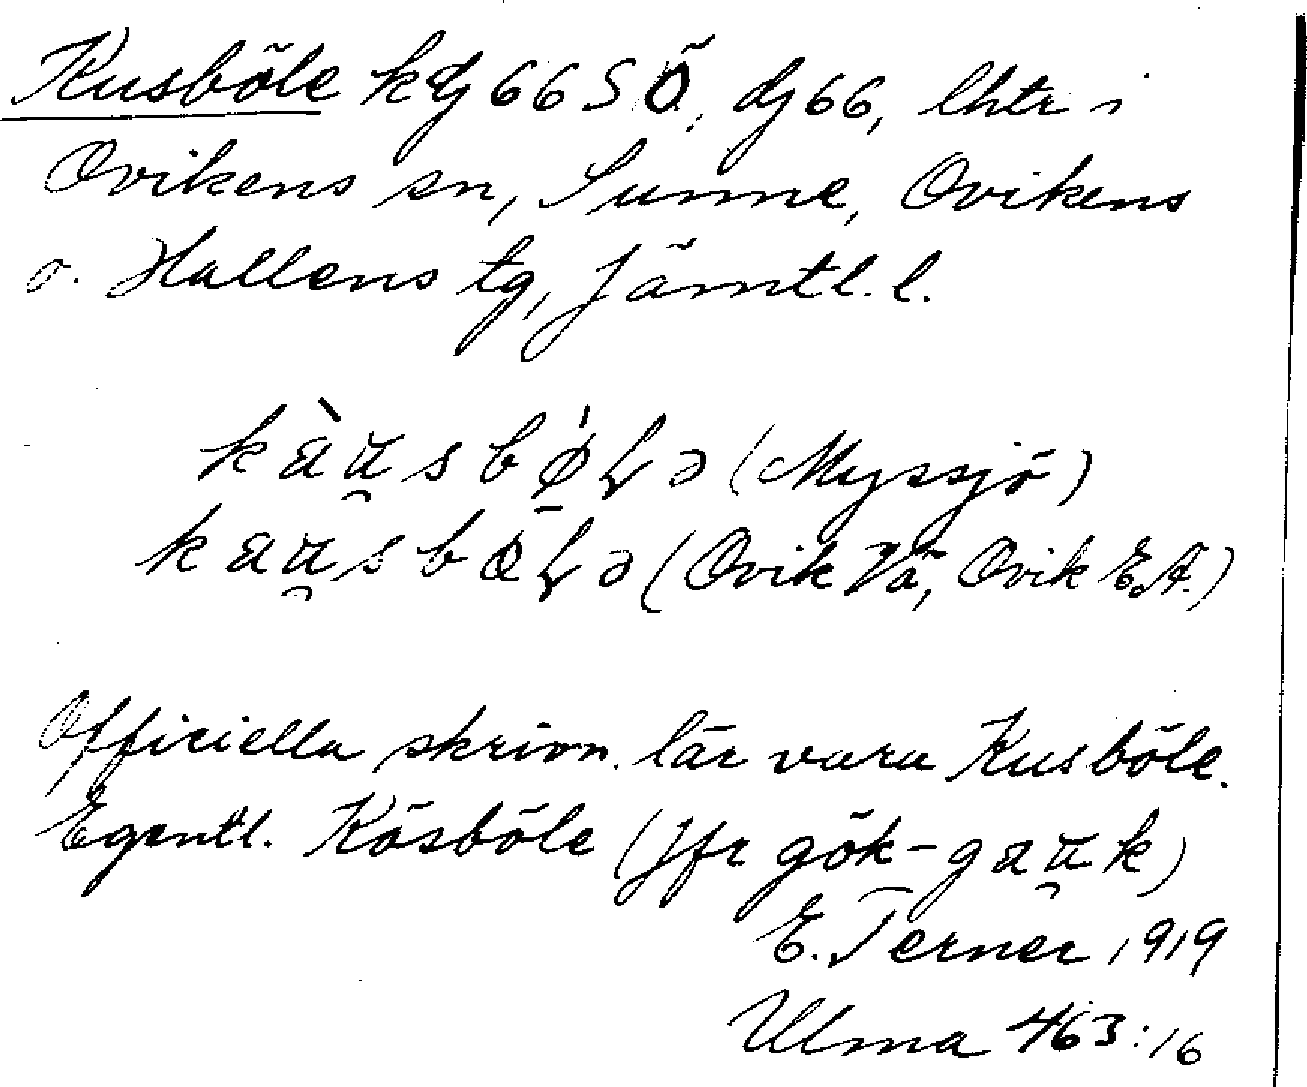 Kusböle kdj 66 S Ö, dj 66, lhtr i
Ovikens sn, Sunne, Ovikens
o. Hallens tg, Jämtl. l.
kàu̯sbø̍Lə (Myssjö)
kau̯sbø̄Lə (Ovik Vä, Ovik E.A.)
Officiella skrivn. lär vara Kusböle.
Egentl. Kösböle (jfr gök - gau̯k)
E. Terner 1919
Ulma 463:16